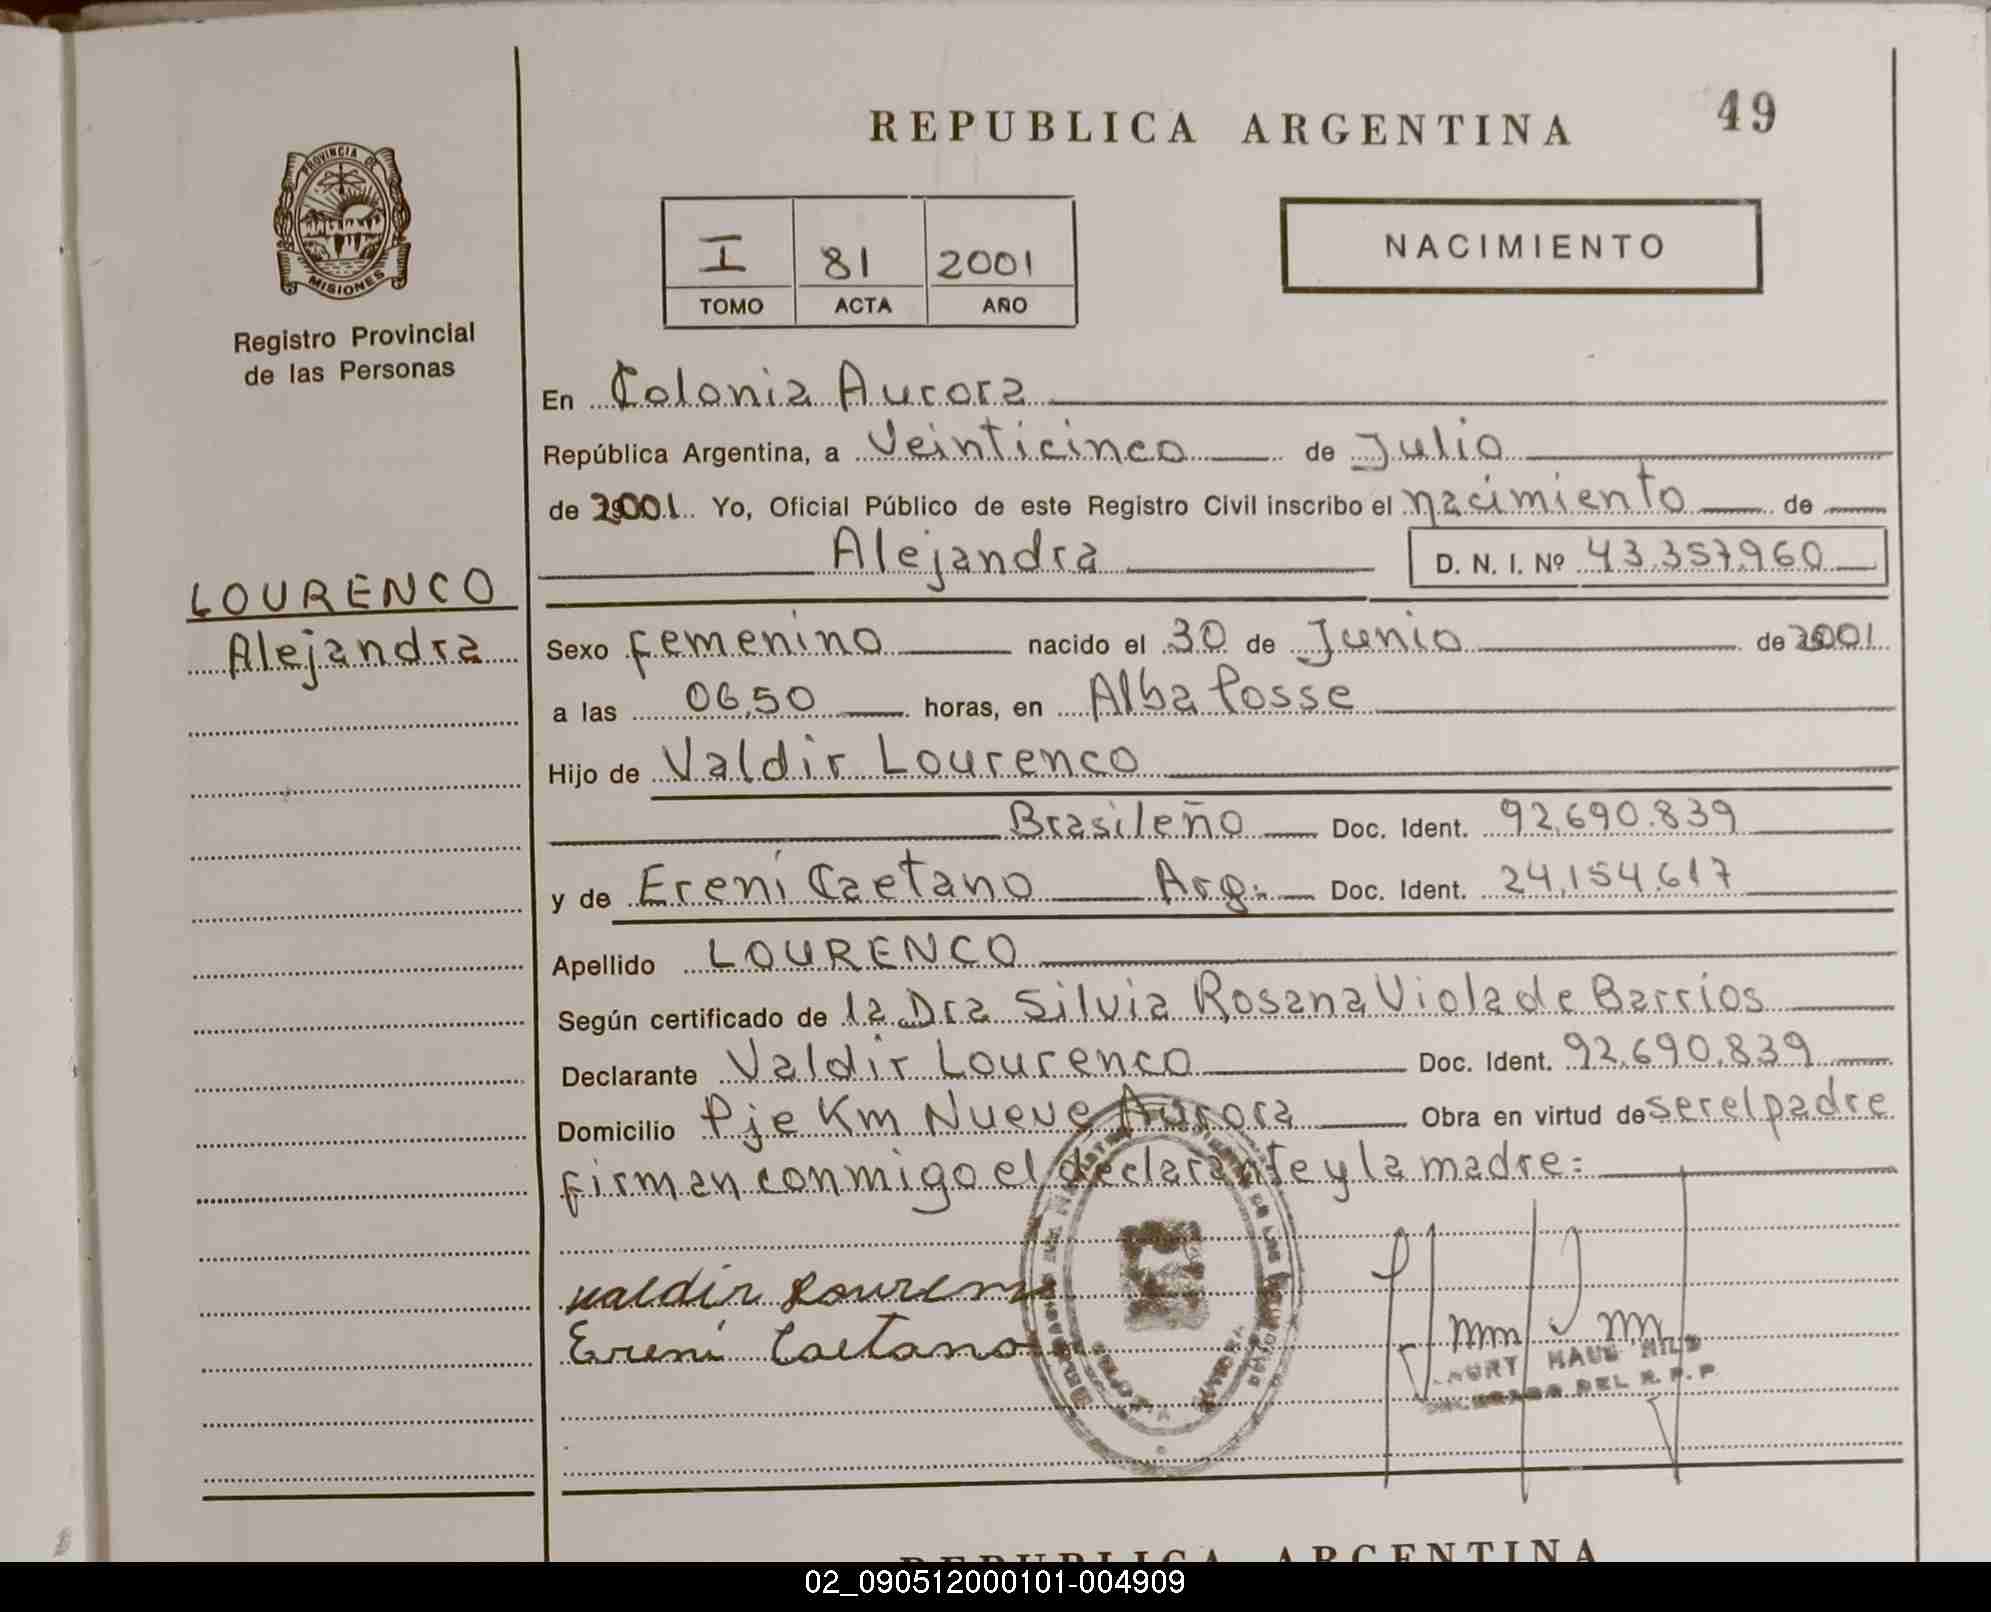 REPUBLICA ARGENTINA 49
PROVINCIA DE
MISIONES
Registro Provincial
de las Personas
I 81 2001
TOMO ACTA AÑO
NACIMIENTO
En Colonia Aurora
República Argentina, a Veinticinco de Julio
de 2001. Yo, Oficial Público de este Registro Civil inscribo el nacimiento de
Alejandra D. N. I. Nº 43.357.960
LOURENCO
Alejandra
Sexo femenino nacido el 30 de Junio de 2001
a las 06,50 horas, en Alba Posse
Hijo de Valdir Lourenco
Brasileño Doc. Ident. 92.690.839
y de Erení Caetano Arg. Doc. Ident. 24.154.617
Apellido LOURENCO
Según certificado de la Dra Silvia Rosana Viola de Barrios
Declarante Valdir Lourenco Doc. Ident. 92.690.839
Domicilio Pje Km Nueve Aurora Obra en virtud de ser el padre
firman conmigo el declarante y la madre=
Valdir Lourenco
Erení Caetano
DEL R. P. P
REPUBLICA ARGENTINA
02_090512000101-004909